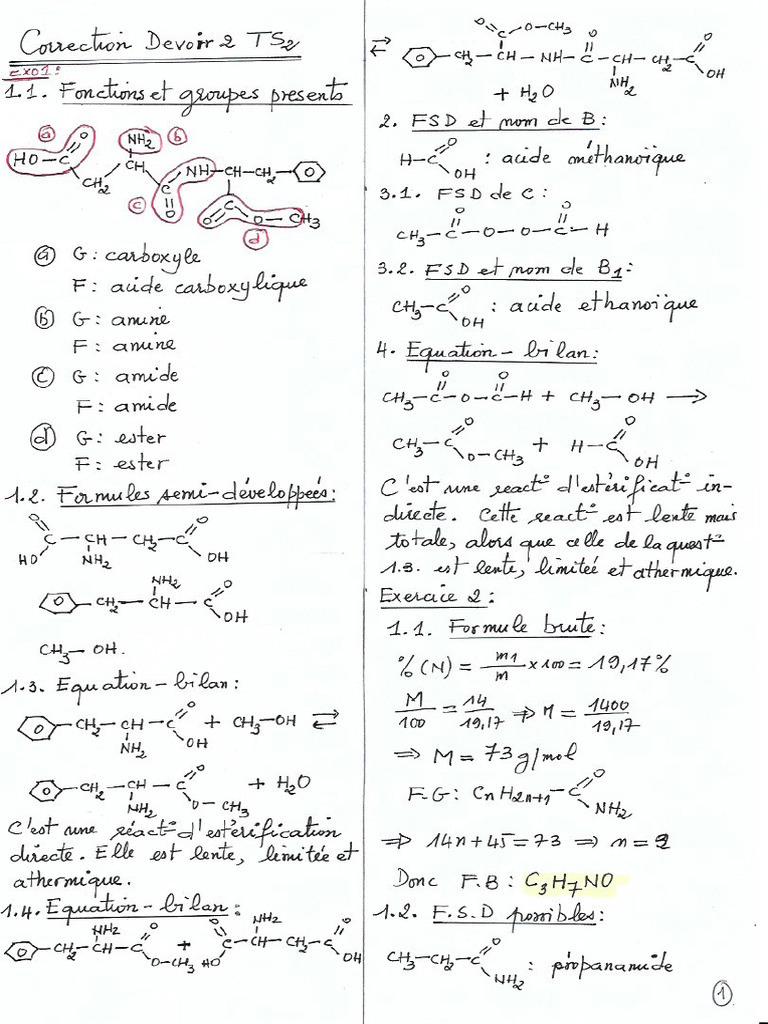 Correction Devoir 2 TS2
Exo1:
1.1. Fonctions et groupes presents
(a) NH2 (b)
HO—C=O CH NH—CH—CH2
CH2 C=O C=O O—CH3
(c) (d)
(a) G: carboxyle
F: acide carboxylique
(b) G: amine
F: amine
(c) G: amide
F: amide
(d) G: ester
F: ester
1.2. Formules semi-développées:
O=C—CH—CH2—C=O
HO NH2 OH
NH2
CH2—CH—C=O
OH
CH3—OH.
1.3. Equation-bilan:
CH2—CH—C=O + CH3—OH ⇌
NH2 OH
CH2—CH—C=O + H2O
NH2 O—CH3
C'est une réact° d'estérification
directe. Elle est lente, limitée et
athermique.
1.4. Equation-bilan:
NH2 NH2
CH2—CH—C=O + O=C—CH—CH2—C=O
O—CH3 HO OH
O=C—O—CH3
⇌ CH2—CH—NH—C=O—CH—CH2—C=O
NH2 OH
+ H2O
2. FSD et nom de B:
H—C=O
OH : acide méthanoïque
3.1. FSD de C:
O O
CH3—C—O—O—C—H
3.2. FSD et nom de B1:
CH3—C=O
OH : acide ethanoïque
4. Equation-bilan:
O O
CH3—C—O—C—H + CH3—OH →
CH3—C=O + H—C=O
O—CH3 OH
C'est une react° d'estérificat° in-
directe. Cette react° est lente mais
totale, alors que celle de la quest°
1.3. est lente, limitée et athermique.
Exercice 2:
1.1. Formule brute:
%(N) = m1/m x100 = 19,17%
M/100 = 14/19,17 ⇒ M = 1400/19,17
⇒ M = 73 g/mol
F.G: CnH2n+1—C=O
NH2
⇒ 14n+45=73 ⇒ n=2
Donc F.B: C3H7NO
1.2. F.S.D possibles:
CH3—CH2—C=O
NH2 : propanamide
1